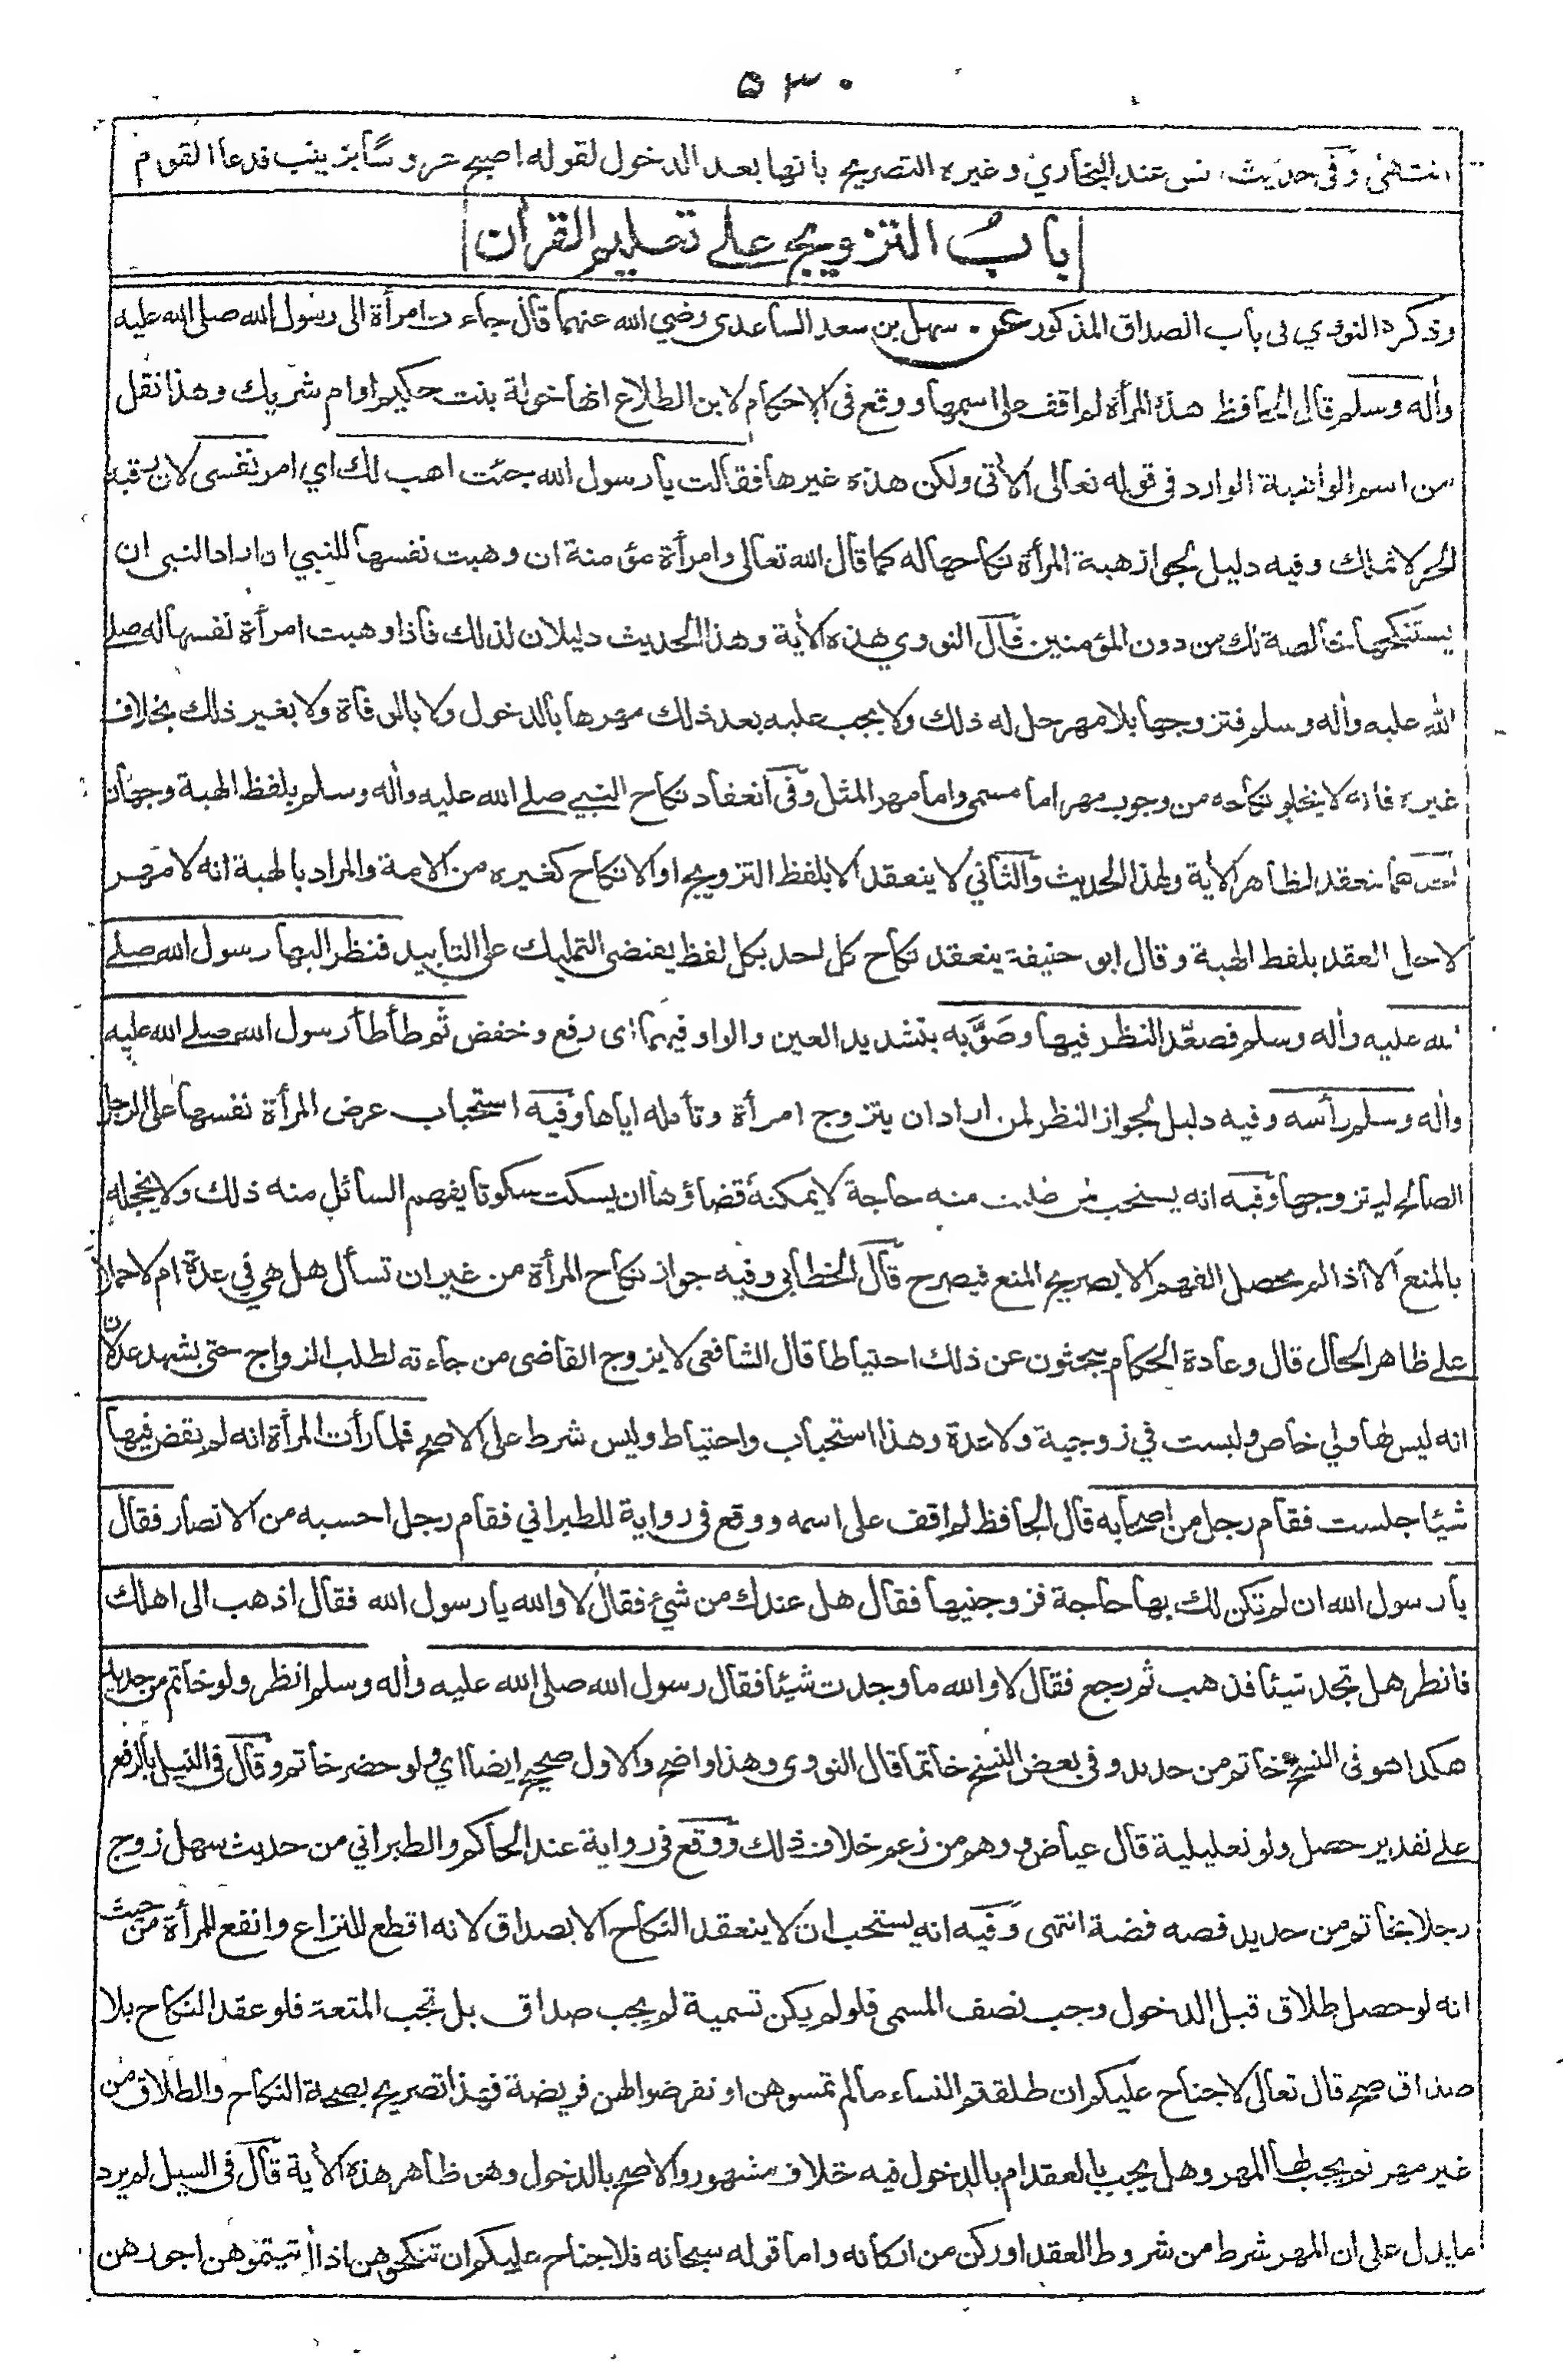 ٥٣٠
انتهى وفي حديث انس عند البخاري وغيره التصريح بانها بعد الدخول لقوله اصبح عروسًا بزينب فدعا القوم
باب التزويج على تعليم القرآن
وذكره النووي في باب الصداق المذكور عن سهل بن سعد الساعدي رضي الله عنهما قال جاءت امرأة الى رسول الله صلى الله عليه
وأله وسلم قال الحافظ هذه المرأة لم اقف على اسمها ووقع في الاحكام لابن الطلاع انها خولة بنت حكيم او ام شريك وهذا نقل
من اسم الواهبة الوارد في قوله تعالى الأتي ولكن هذه غيرها فقالت يا رسول الله جئت اهب لك اي امر نفسى لان رقبة
الحر لا تملك وفيه دليل لجواز هبة المرأة نكاحها له كما قال الله تعالى وامرأة مؤمنة ان وهبت نفسها للنبي ان اراد النبي ان
يستنكحها خالصة لك من دون المؤمنين قال النووي هذه الأية وهذا الحديث دليلان لذلك فاذا وهبت امرأة نفسها له صلے
الله عليه وأله وسلم فتزوجها بلا مهر حل له ذلك ولا يجب عليه بعد ذلك مهرها بالدخول ولا بالوفاة ولا بغير ذلك بخلاف
غيره فانه لا يخلو نكاحه من وجوب مهر اما مسمى واما مهر المثل وفي انعقاد نكاح النبي صلے الله عليه وأله وسلم بلفظ الهبة وجهان
احدهما ينعقد لظاهر الأية ولهذا الحديث والثاني لا ينعقد الا بلفظ التزويج او الانكاح كغيره من الامة والمراد بالهبة انه لا مهر
لاجل العقد بلفظ الهبة وقال ابو حنيفة ينعقد نكاح كل احد بكل لفظ يقتضى التمليك على التابيد فنظر اليها رسول الله صلے
الله عليه وأله وسلم فصعّد النظر فيها وصَوَّبه بتشديد العين والواو فيهما اى رفع وخفض ثم طأطأ رسول الله صلے الله عليه
وأله وسلم رأسه وفيه دليل لجواز النظر لمن اراد ان يتزوج امرأة وتأمله اياها وفيه استحباب عرض المرأة نفسها على الرجل
الصالح ليتزوجها وفيه انه يستحب لمن طلبت منه حاجة لا يمكنه قضاؤها ان يسكت سكوتا يفهم السائل منه ذلك ولا يخجله
بالمنع الا اذا لم يحصل الفهم الا بصريح المنع فيصرح قال الخطابي وفيه جواز نكاح المرأة من غير ان تسأل هل هي في عدة ام لا حملا
على ظاهر الحال قال وعادة الحكام يبحثون عن ذلك احتياطا قال الشافعي لا يزوج القاضى من جاءته لطلب الزواج حتى يشهد عدلان
انه ليس لها ولي خاص وليست في زوجية ولا عدة وهذا استحباب واحتياط وليس شرط على الاصح فلما رأت المرأة انه لم يقض فيها
شيئا جلست فقام رجل من اصحابه قال الحافظ لم اقف على اسمه ووقع في رواية للطبراني فقام رجل احسبه من الانصار فقال
يا رسول الله ان لم تكن لك بها حاجة فزوجنيها فقال هل عندك من شئ فقال لا والله يا رسول الله فقال اذهب الى اهلك
فانظر هل تجد شيئا فذهب ثم رجع فقال لا والله ما وجدت شيئا فقال رسول الله صلى الله عليه وأله وسلم انظر ولو خاتم من حديد
هكذا هو في النسخ خاتم من حديد وفي بعض النسخ خاتما قال النووى وهذا واضح والاول صحيح ايضا اي ولو حضر خاتم وقال في النيل بالرفع
على تقدير حصل ولو تعليلية قال عياض ووهم من زعم خلاف ذلك ووقع في رواية عند الحاكم والطبراني من حديث سهل زوج
رجلا بخاتم من حديد فصه فضة انتهى وفيه انه يستحب ان لا ينعقد النكاح الا بصداق لانه اقطع للنزاع وانفع للمرأة من حيث
انه لو حصل طلاق قبل الدخول وجب نصف المسمى فلو لم يكن تسمية لم يجب صداق بل تجب المتعة فلو عقد النكاح بلا
صداق صح قال تعالى لا جناح عليكم ان طلقتم النساء ما لم تمسوهن او تفرضوا لهن فريضة فهذا تصريح بصحة النكاح والطلاق من
غير مهر ثم يجب لها المهر وهل يجب بالعقد ام بالدخول فيه خلاف مشهور والاصح بالدخول وهو ظاهر هذه الأية قال في السيل لم يرد
ما يدل على ان المهر شرط من شروط العقد او ركن من اركانه واما قوله سبحانه فلا جناح عليكم ان تنكحوهن اذا أتيتموهن اجورهن